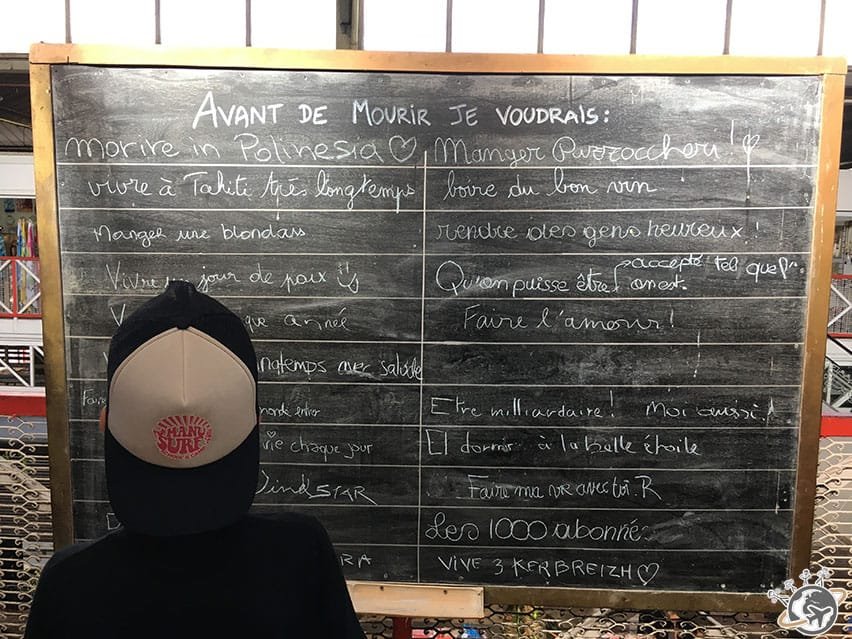 AVANT DE MOURIR JE VOUDRAIS:
morire in Polinesia ♡
vivre à Tahiti très longtemps
Manger une blondass
Vivre un jour de paix
année
avec
Faire
chaque jour
WindSTAR
Manger Puzzoccheri! ♡
boire du bon vin
rendre des gens heureux!
Qu'on puisse être accepté tel que
l'on est.
Faire l'amour!
Etre milliardaire! Moi aussi!
Et dormir à la belle étoile
Faire ma vie avec toi. R
Les 1000 abonné
VIVE 3 KERBREIZH ♡
MANU
SURF